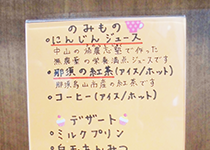 のみもの
•にんじんジュース
中山の 農 で作った
無農薬の栄養満点ジュースです
•那須の紅茶(アイス/ホット)
那須烏山市産の紅茶です
•コーヒー(アイス/ホット)
デザート
•ミルクプリン
•白玉あんみつ